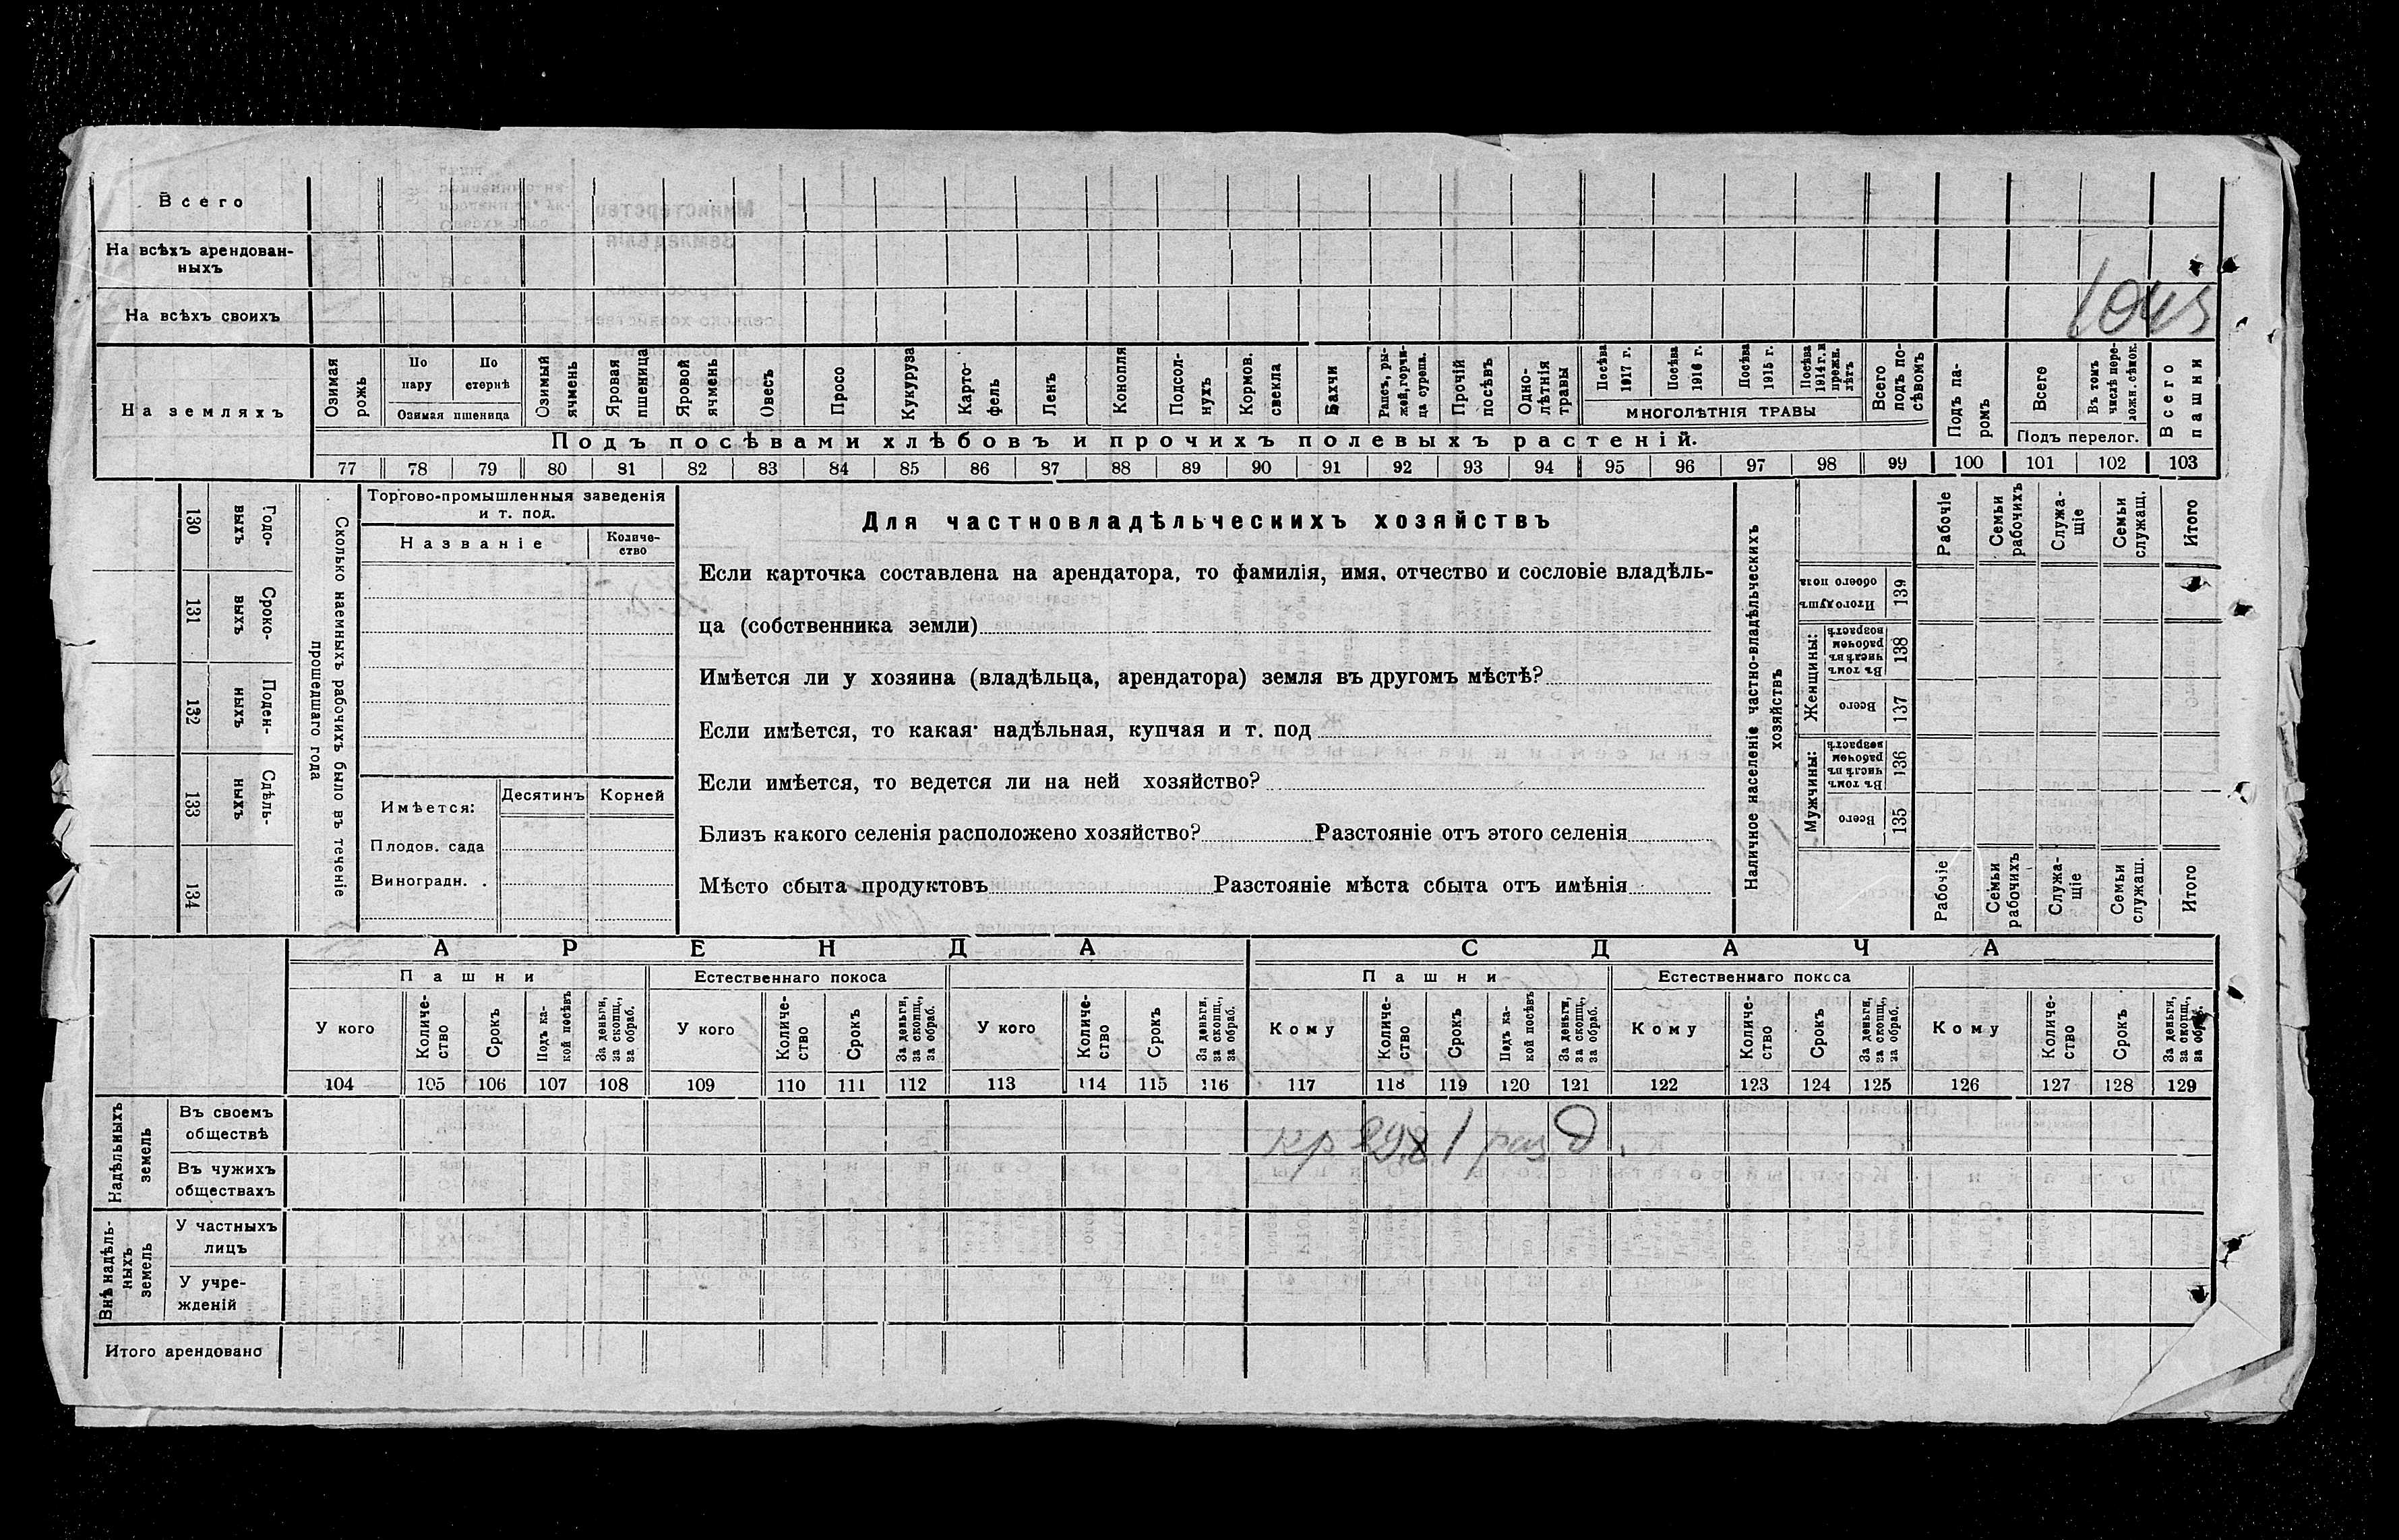 Всего
На всѣхъ арендован-
ныхъ
На всѣхъ своихъ
На земляхъ
Озимая рожь
По пару
По стернѣ
Озимая пшеница
Озимый ячмень
Яровая пшеница
Яровой ячмень
Овесъ
Просо
Кукуруза
Карто-
фель
Ленъ
Конопля
Подсол-
нухъ
Кормов. свекла
Бахчи
Рапсъ, ры-
жей, горчи-
ца сурепа.
Прочій посѣвъ
Одно-
лѣтнія травы
Посѣва 1917 г.
Посѣва 1916 г.
Посѣва 1915 г.
Посѣва 1914 г. и прежн. лѣтъ
МНОГОЛѢТНІЯ ТРАВЫ
Всего подъ по-
сѣвомъ
Подъ па-
ромъ
Всего
Въ томъ числѣ пере-
ложн. сѣнок.
Подъ перелог.
Всего пашни
Подъ посѣвами хлѣбовъ и прочихъ полевыхъ растеній.
77 78 79 80 81 82 83 84 85 86 87 88 89 90 91 92 93 94 95 96 97 98 99 100 101 102 103
130 Годо-
выхъ
131 Сроко-
выхъ
132 Поден-
ныхъ
133 Сдѣль-
ныхъ
134
Сколько наемныхъ рабочихъ было въ теченіе
прошедшаго года
Торгово-промышленныя заведенія
и т. под.
Названіе
Количе-
ство
Имѣется:
Десятинъ
Корней
Плодов. сада
Виноградн. .
Для частновладѣльческихъ хозяйствъ
Если карточка составлена на арендатора, то фамилія, имя, отчество и сословіе владѣль-
ца (собственника земли)
Имѣется ли у хозяина (владѣльца, арендатора) земля въ другомъ мѣстѣ?
Если имѣется, то какая надѣльная, купчая и т. под
Если имѣется, то ведется ли на ней хозяйство?
Близъ какого селенія расположено хозяйство? Разстояніе отъ этого селенія
Мѣсто сбыта продуктовъ Разстояніе мѣста сбыта отъ имѣнія
Наличное населеніе частно-владѣльческихъ
хозяйствъ
Рабочіе
Семьи рабочихъ
Служа-
щіе
Семьи служащ.
Итого
Итого душъ обоего пола 139
Женщины:
Въ томъ числѣ въ рабочем возрастѣ 138
Всего 137
Мужчины:
Въ томъ числѣ въ рабочем возрастѣ 136
Всего 135
Рабочіе
Семьи рабочихъ
Служа-
щіе
Семьи служащ.
Итого
АРЕНДА
СДАЧА
Пашни
Естественнаго покоса
Пашни
Естественнаго покоса
У кого
Количе-
ство
Срокъ
Подъ ка-
кой посѣвъ
За деньги, за скопщ., за обраб.
У кого
Количе-
ство
Срокъ
За деньги, за скопщ., за обраб.
У кого
Количе-
ство
Срокъ
За деньги, за скопщ., за обраб.
Кому
Количе-
ство
Срокъ
Подъ ка-
кой посѣвъ
За деньги, за скопщ., за обраб.
Кому
Количе-
ство
Срокъ
За деньги, за скопщ., за обраб.
Кому
Количе-
ство
Срокъ
За деньги, за скопщ., за обраб.
104 105 106 107 108 109 110 111 112 113 114 115 116 117 118 119 120 121 122 123 124 125 126 127 128 129
Надѣльныхъ
земель
Въ своемъ
обществѣ
Въ чужихъ
обществахъ
Внѣ надѣль-
ныхъ
земель
У частныхъ
лицъ
У учре-
жденій
Итого арендовано